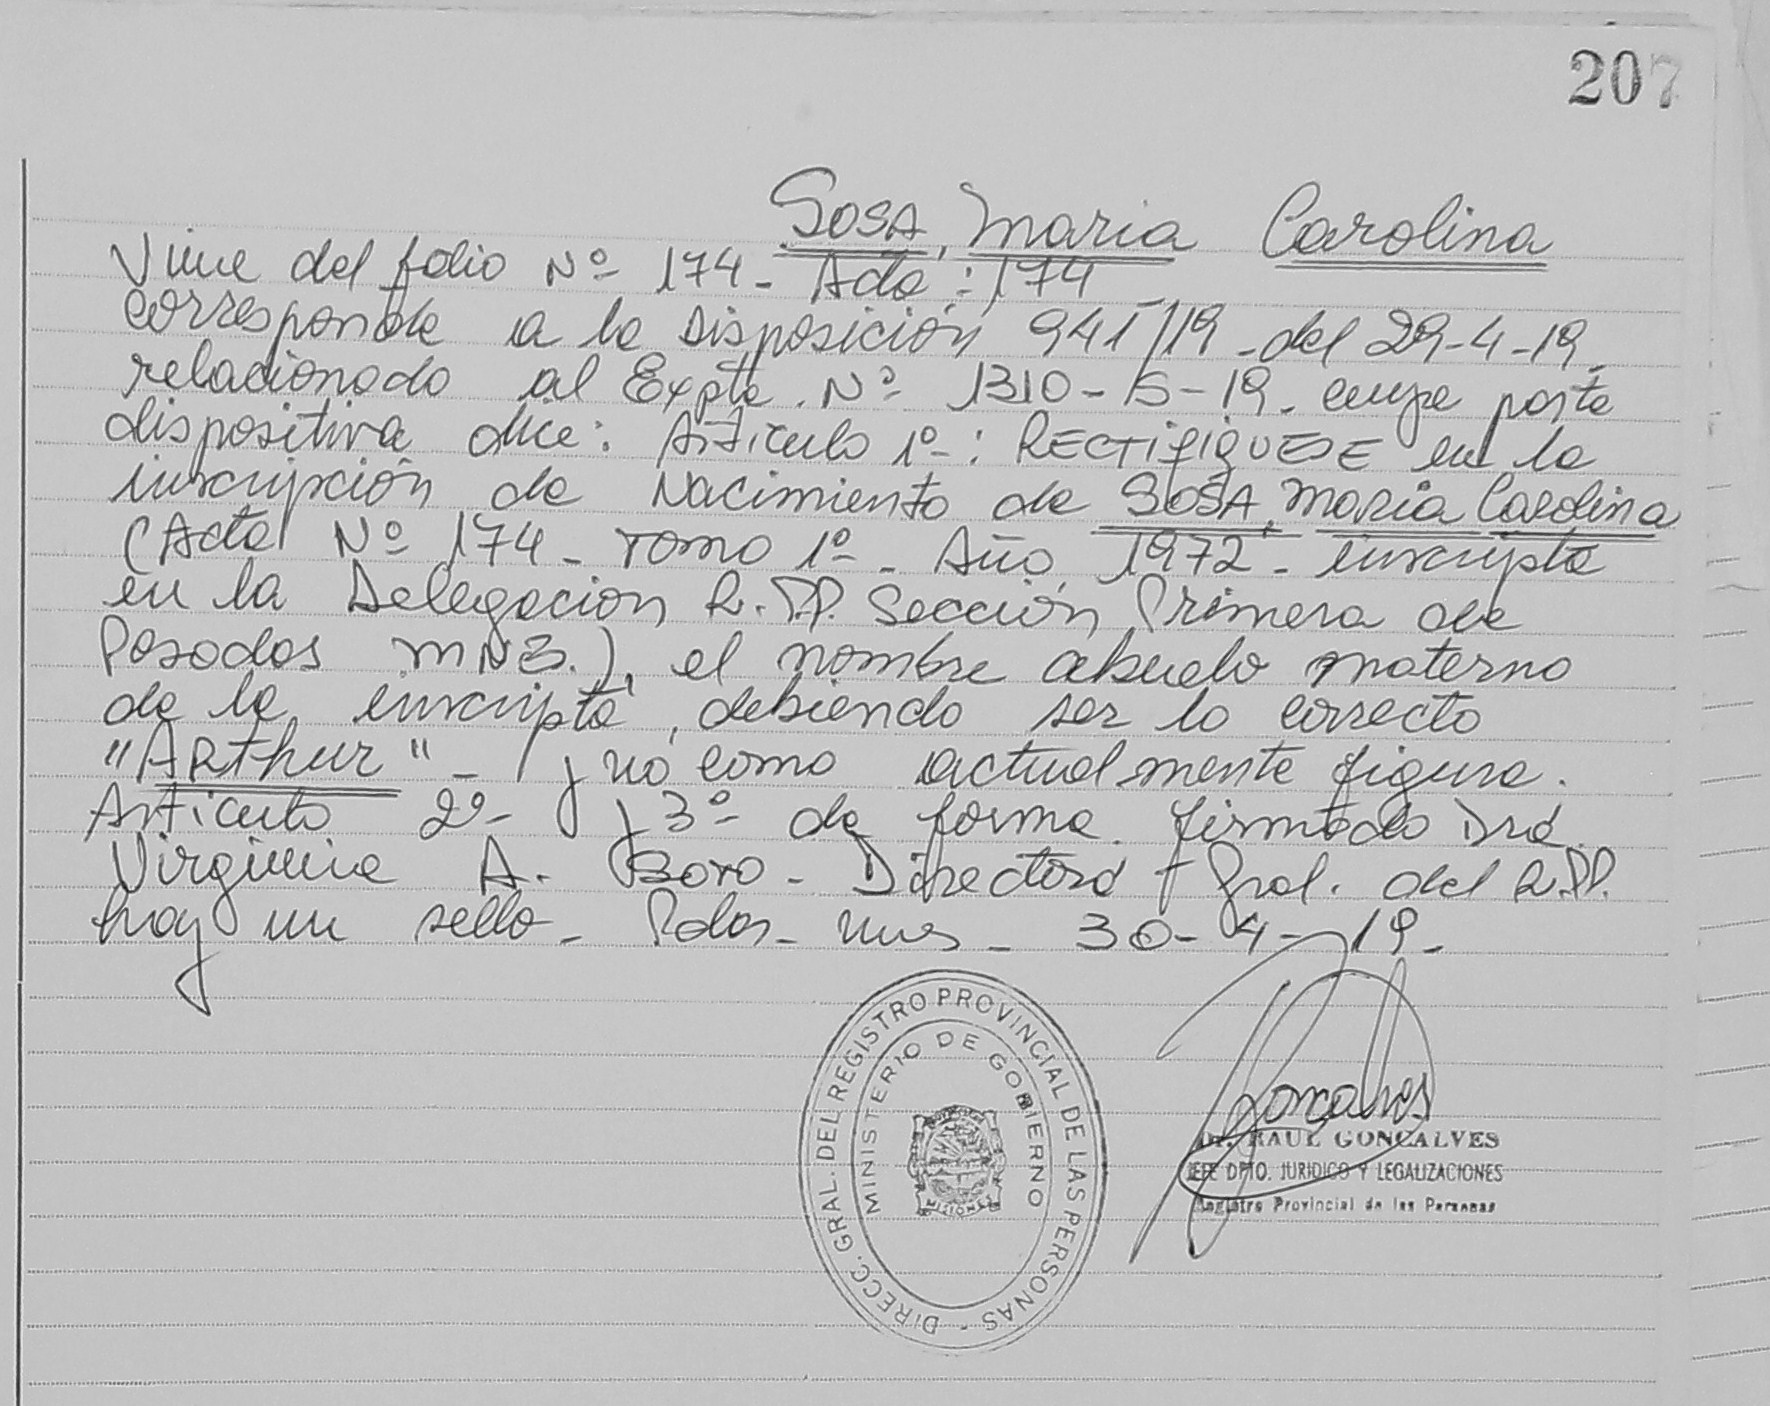 207
SOSA, Maria Carolina
Viene del folio Nº 174 - Acta: 174
corresponde a la Disposición 941/19 - del 29-4-19 -
relacionado al Expte. Nº 1310-S-19 - cuya parte
dispositiva dice: Artículo 1º: RECTIFIQUESE en la
inscripción de Nacimiento de SOSA, Maria Carolina
(Acta Nº 174 - Tomo 1º - Año 1972 - inscripta
en la Delegación R.P.P. Sección Primera de
Posadas MNES.), el nombre abuelo materno
de la inscripta, debiendo ser lo correcto
"ARthur" - y no como actualmente figura.
Artículo 2º - y 3º - de forma. firmado Dra.
Virginia A. - Directora Gral. del R.P.P.
hay un sello - Pdas - Mnes - 30-4-19 -
DIRECC. GRAL. DEL REGISTRO PROVINCIAL DE LAS PERSONAS -
MINISTERIO DE GOBIERNO
MISIONES
Goncalves
Dr. RAUL GONCALVES
JEFE DPTO. JURIDICO Y LEGALIZACIONES
Registro Provincial de las Personas